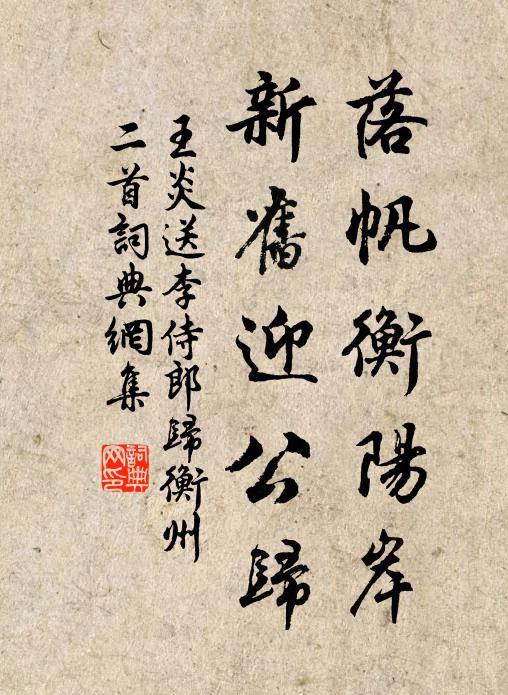 落帆衡陽岸
新舊迎公歸
王炎送李侍郎歸衡州
二首詞典網集
詞典网印